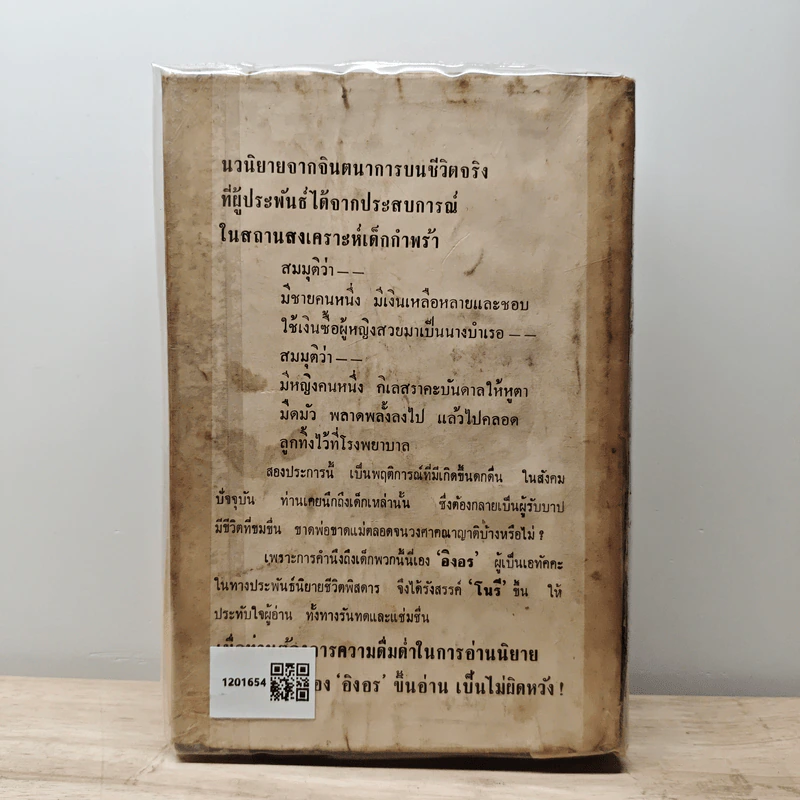 นวนิยายจากจินตนาการบนชีวิตจริง
ที่ผู้ประพันธ์ได้จากประสบการณ์
ในสถานสงเคราะห์เด็กกำพร้า
สมมุติว่า — —
มีชายคนหนึ่ง มีเงินเหลือหลายและชอบ
ใช้เงินซื้อผู้หญิงสวยมาเป็นนางบำเรอ — —
สมมุติว่า — —
มีหญิงคนหนึ่ง กิเลสราคะบันดาลให้หูตา
มืดมัว พลาดพลั้งลงไป แล้วไปคลอด
ลูกทิ้งไว้ที่โรงพยาบาล
สองประการนี้ เป็นพฤติการณ์ที่มีเกิดขึ้นดกดื่น ในสังคม
ปัจจุบัน ท่านเคยนึกถึงเด็กเหล่านั้น ซึ่งต้องกลายเป็นผู้รับบาป
มีชีวิตที่ขมขื่น ขาดพ่อขาดแม่ตลอดจนวงศาคณาญาติบ้างหรือไม่ ?
เพราะการคำนึงถึงเด็กพวกนี้นี่เอง ‘อิงอร’ ผู้เป็นเอทัคคะ
ในทางประพันธ์นิยายชีวิตพิสดาร จึงได้รังสรรค์ ‘โนรี’ ขึ้น ให้
ประทับใจผู้อ่าน ทั้งทางรันทดและแช่มชื่น
การความดื่มด่ำในการอ่านนิยาย
‘อิงอร’ ขึ้นอ่าน เป็นไม่ผิดหวัง !
1201654